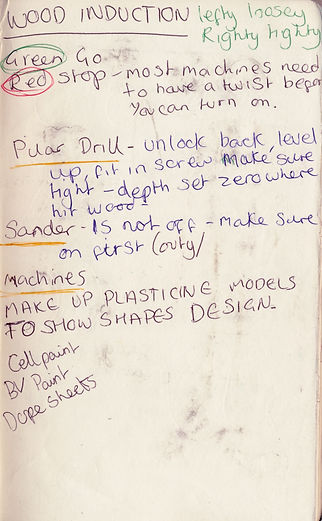 WOOD INDUCTION
lefty loosey
Righty tighty
Green Go
Red stop - most machines need
to have a twist before
you can turn on.
Pillar Drill - unlock back, level
up, fit in screw make sure
tight - depth set zero where
hit wood -
Sander - IS not off - make sure
on first
machines
MAKE UP PLASTICINE MODELS
TO SHOW SHAPES DESIGN.
Cell paint
Paint
Dope Sheets